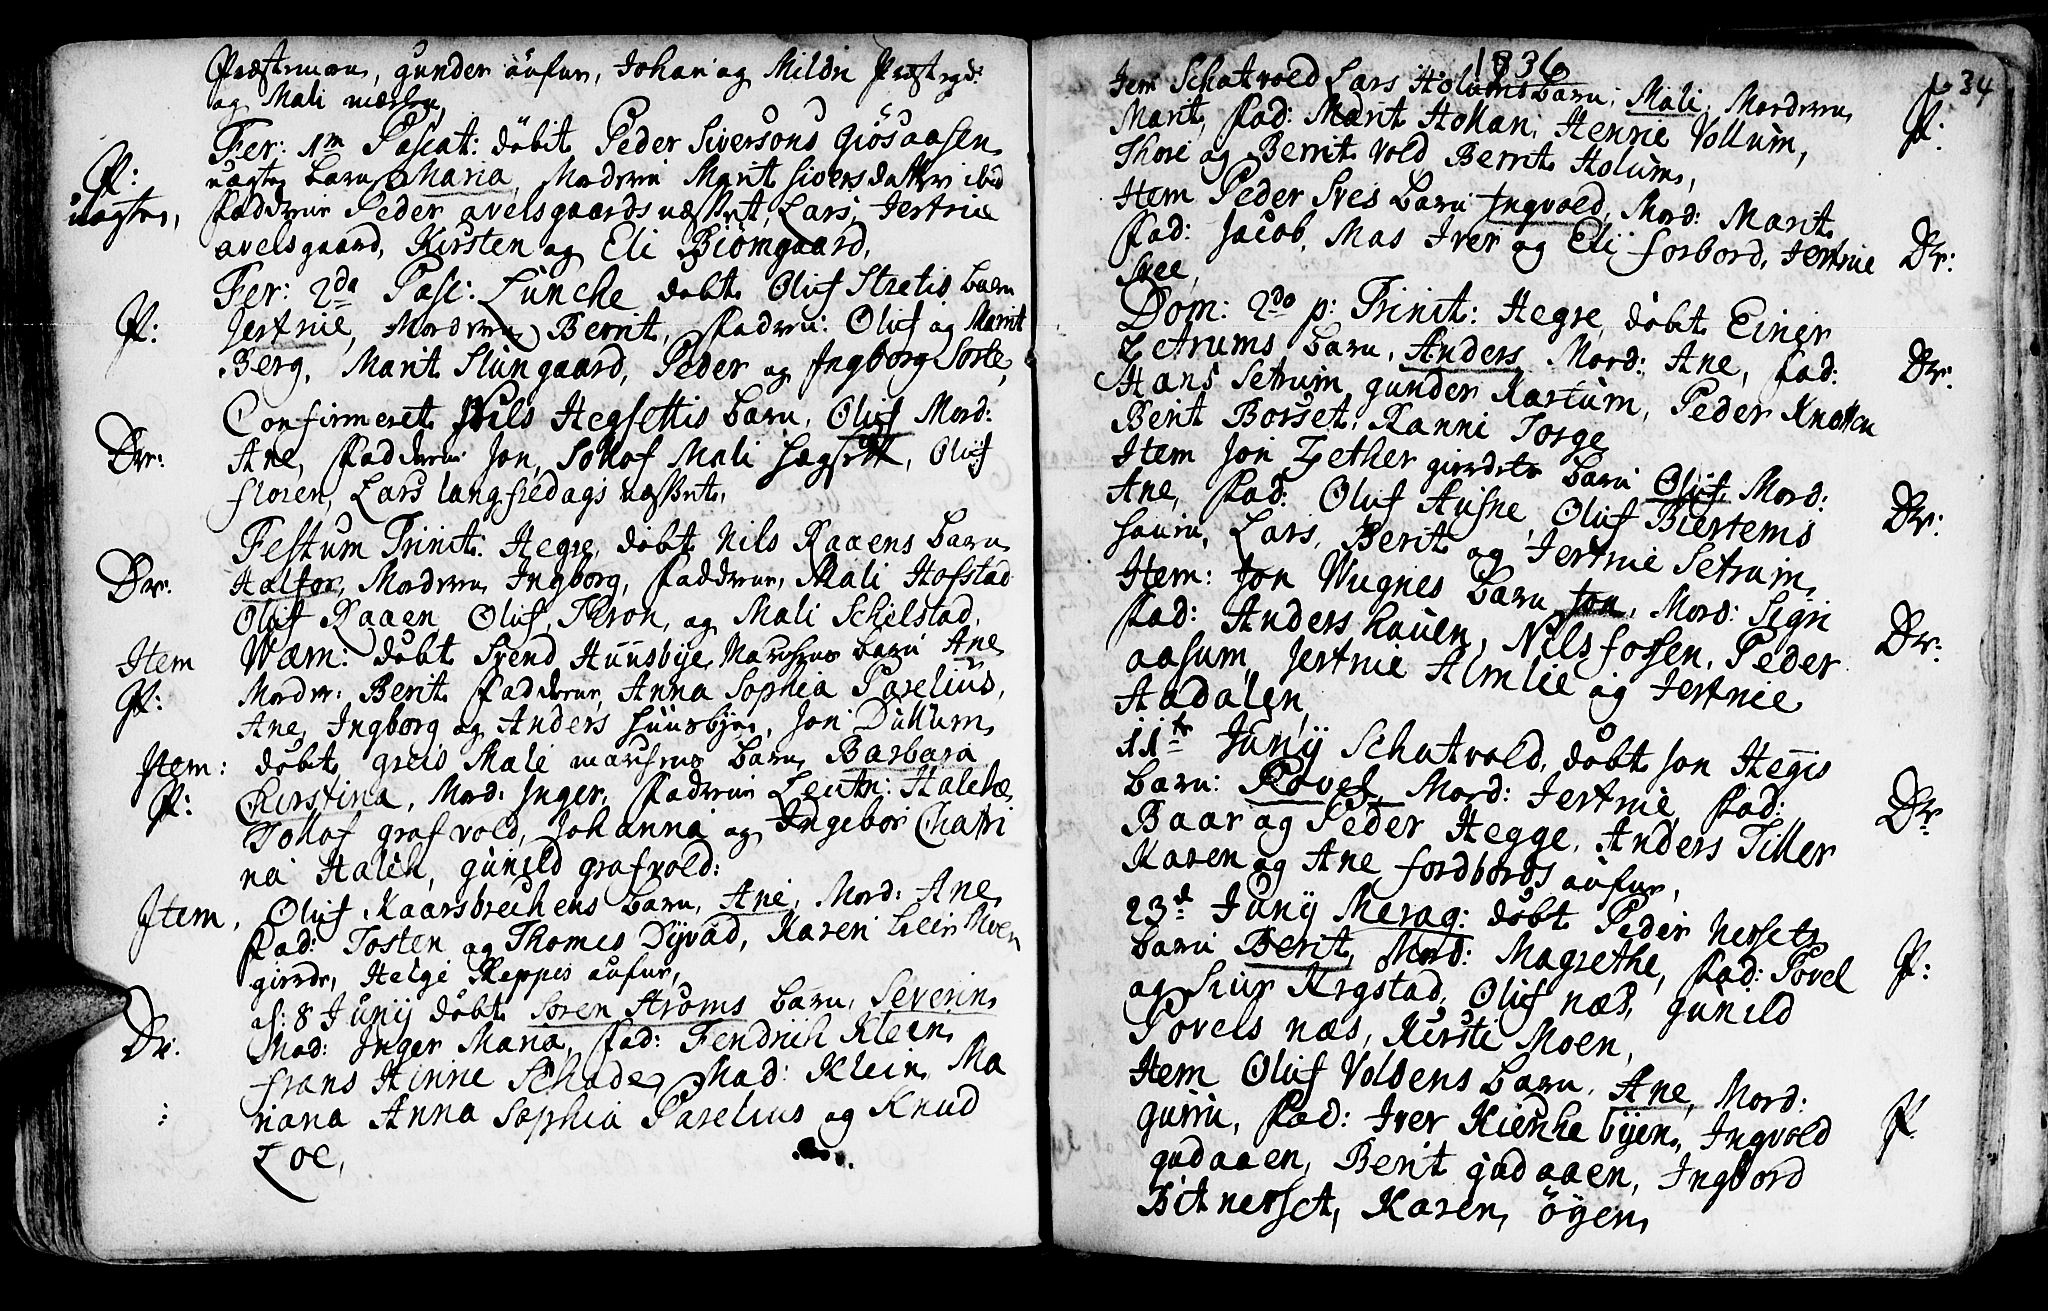 Præstemoen, gunder aufur, Johan og Mildri Prestegd:
og Mali mæshus,
Fer: 1m Pascat: döbt Peder Siversons Giösaasen
P: uægte barn Maria, Moderen Marit Siversdatter ibid
uægte, Fadderne Peder avelsgaards næstet, Lars, Jertrue
avelsgaard, Kirsten og Eli Biömgaard,
Fer: 2da Pasc: Lunche döbt Oluf Stretis barn
P: Jertrue, Moderen Berrit, Faderne: Oluf og Marrit
Berg, Marit Slungaard, Peder og Ingborg Sorte,
Confirmeret Nils Hegsettis barn, Oluf Mord:
Dr: Ane, Fadderne Jon, Tollof Mali Hægsett, Oluf
floren, Lars langfredags næstet,
Festum Trinit: Hegre, döbt Nils Raaens barn
Dr: Halfor, Moderen Ingborg, Fadderne, Mali Hofstad
Oluf Raaen Oluf, Tron, og Mali Schilstad,
Item Wærn: döbt Svend Huusbye barn Ane
P: Moder: Berit Fadderne, Anna Sophia Parelius,
Ane, Ingborg og Anders Huusbye, Jon Dullum,
Item: döbt greis Mali barn Barbara
P: Christina, Mod: Inger, Fadderne Leutn: Halch
Tollof grafvold, Johanna og Ingebor Chatri
na Halch, gunild grafvold:
Item, Oluf Kaarsbrechens barn, Ane, Mord: Ane,
Fad: Tosten og Thomes Dyvad, Karen Lein Moen
gierde, Helge Reppes aufur,
d: 8 Junij döbt Soren Ströms barn, Severin,
Dr: Mod: Inger Maria, Fad: Fendrich Klein,
Frans Hinrie Schade, Mad: Klein, Ma
: riana Anna Sophia Parelius og Knud
Loe,
1736
p 34
Item Schatvold Lars Holums barn, Mali, Moderen
Marit, Fad: Marit Hohan, Henrie Vollum, P:
Thore og Berrit Vold Berrit Holum,
Item Peder Sves barn Ingvold, Mord: Marit
Fad: Jacob, Mas Iver og Eli forbord, Jertrue Dr:
Svee,
Dom: 2da p: Trinit: Hegre, döbt Einer
Zetrums barn, Anders Mord: Ane, Fad: Dr:
Hans Setrum, gunder Kartum, Peder Knotten
Berit Borset, Ranni Torge
Item Jon Zether gierdets barn Oluf Mord:
Ane, Fad: Oluf Husne, Oluf Biertems Dr:
hauen, Lars, Berit og Jertrue Setrum,
Item: Jon Wugnes barn Jon, Mord: Sigri
Fad: Anders hauen, Nils fossen, Peder Dr:
aasum, Jertrue Almlie og Jertrue
Aadalen,
11te Junij Schatvold, döbt Jon Hegis
barn: Povel, Mord: Jertrue, Fad: Dr:
Baar og Peder Hegge, Anders Tiller
Karen og Ane fordbords aufur,
23d Junij Merag: döbt Peder nerset
barn Berit, Mord: Magrethe, Fad: Povel P:
og Siur Krgstad, Oluf næs, gunild
Povels næs, Kirsti Moen,
Item Oluf Voldens barn, Ane, Mord:
guru, Fad: Iver Kirkebyen, Ingvold P:
gudaaen, Berit gudaaen, Ingbord
Bitnerset, Karen öyen,